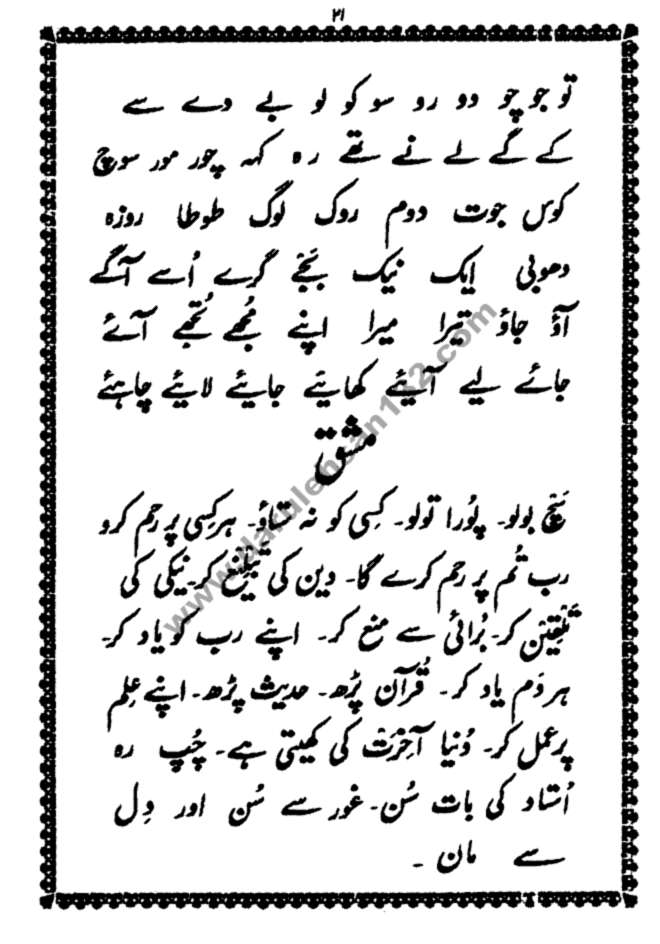 ۲۱
تو جو چو دو رو سو کو لو بے دے سے
کے گے لے نے تھے رہ کہہ چور مور سوچ
کوس جوت دوم روک لوگ طوطا روزہ
دھوبی ایک نیک بچے گرے اُسے آگے
آؤ جاؤ تیرا میرا اپنے مُجھے تُجھے آئے
جائے لیے آئیے کھائیے جائیے لائیے چاہئے
مشق
سَچ بولو۔ پُورا تولو۔ کِسی کو نہ ستاؤ۔ ہر کِسی پر رحم کرو
رب تُم پر رحم کرے گا۔ دین کی تَبلِیغ کر۔ نیکی کی
تَلقِین کر۔ بُرائی سے منع کر۔ اپنے رب کو یاد کر۔
ہر دَم یاد کر۔ قُرآن پڑھ۔ حدیث پڑھ۔ اپنے عِلم
پر عمل کر۔ دُنیا آخِرَت کی کھیتی ہے۔ چُپ رہ
اُستاد کی بات سُن۔ غور سے سُن اور دِل
سے مان ۔
www.darulehsan132.com